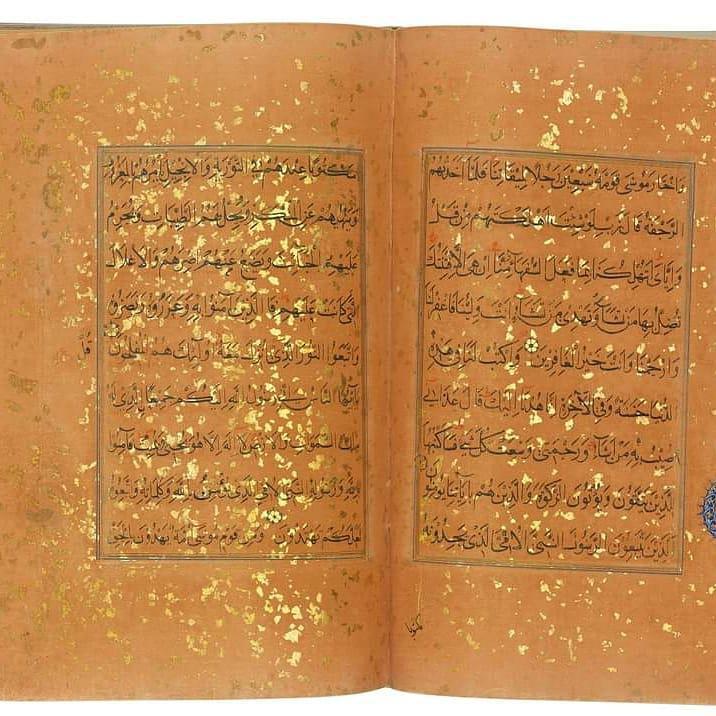 واختار موسى قومه سبعين رجلا لميقاتنا فلما اخذتهم
الرجفة قال رب لو شئت اهلكتهم من قبل
واياي اتهلكنا بما فعل السفهاء منا ان هي الا فتنتك
تضل بها من تشاء وتهدي من تشاء انت ولينا فاغفر لنا
وارحمنا وانت خير الغافرين واكتب لنا في هذه
الدنيا حسنة وفي الآخرة انا هدنا اليك قال عذابي
اصيب به من اشاء ورحمتي وسعت كل شيء فساكتبها
للذين يتقون ويؤتون الزكوة والذين هم بآياتنا يؤمنون
الذين يتبعون الرسول النبي الامي الذي يجدونه
مكتوبا
مكتوبا عندهم في التورية والانجيل يأمرهم بالمعروف
وينهيهم عن المنكر ويحل لهم الطيبات ويحرم
عليهم الخبائث ويضع عنهم اصرهم والاغلال
التي كانت عليهم فالذين آمنوا به وعزروه ونصروه
واتبعوا النور الذي انزل معه اولئك هم المفلحون
قل
يا ايها الناس اني رسول الله اليكم جميعا الذي له
ملك السموات والارض لا اله الا هو يحيي ويميت فآمنوا
بالله ورسوله النبي الامي الذي يؤمن بالله وكلماته واتبعوه
لعلكم تهتدون ومن قوم موسى امة يهدون بالحق